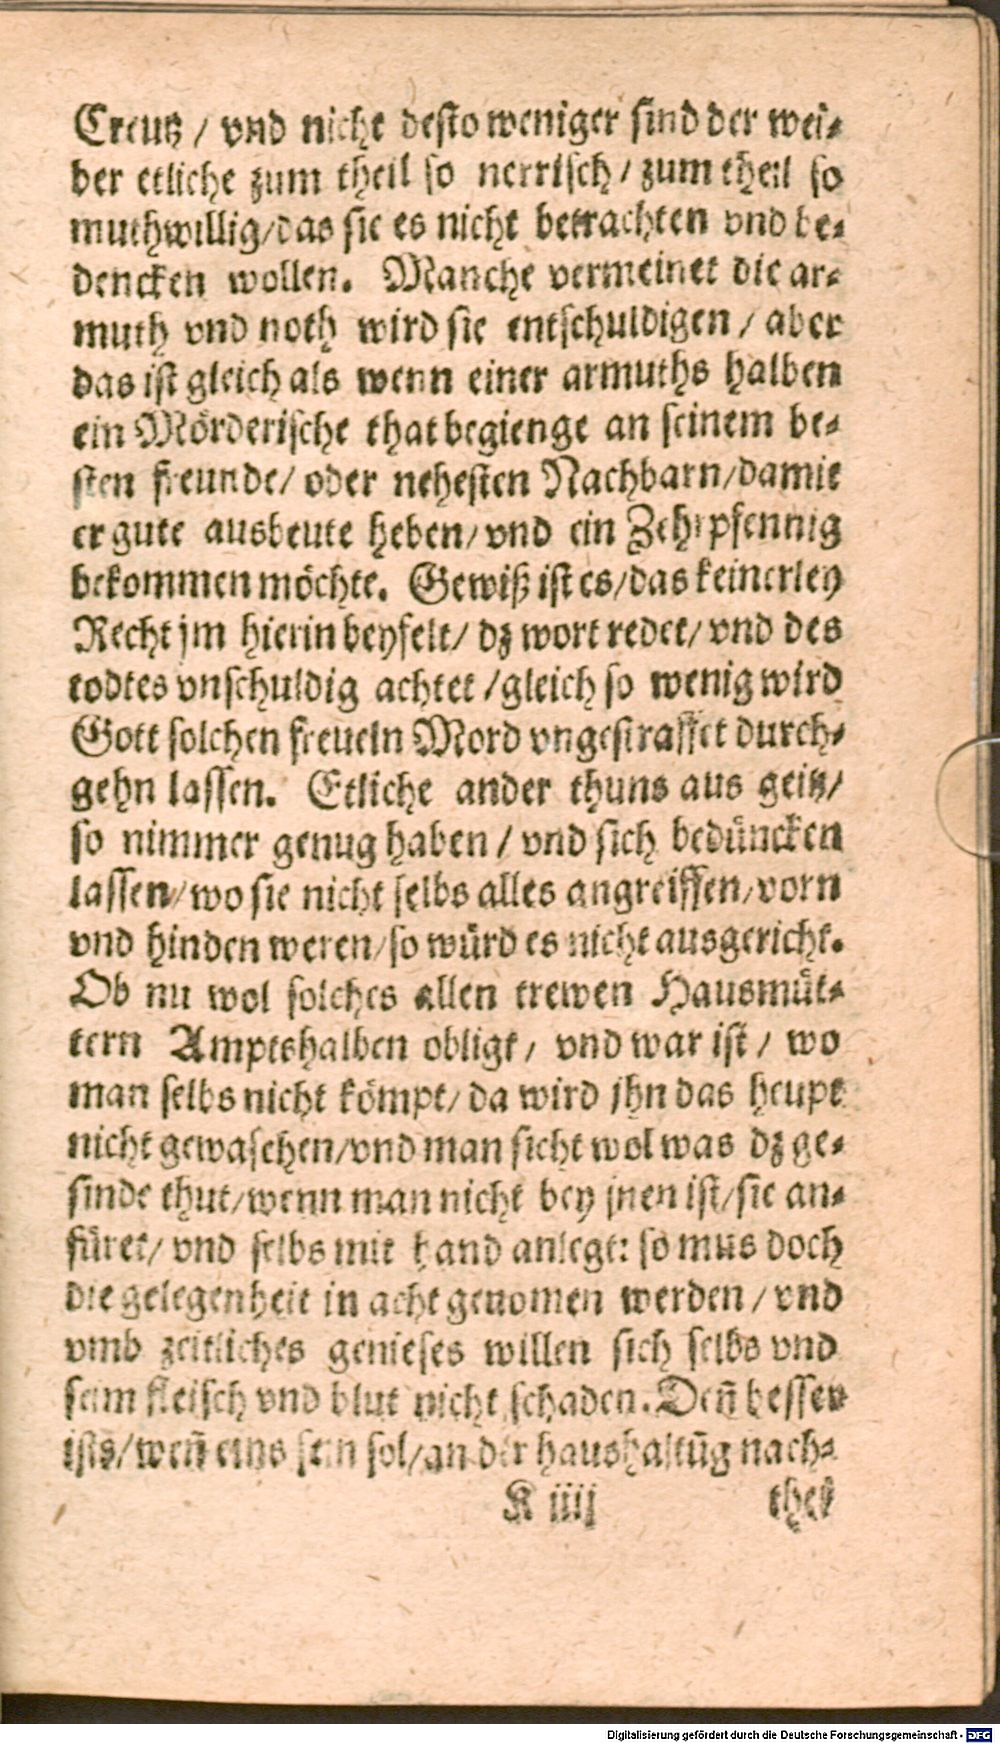 Creutz / vnd nicht desto weniger sind der wei-
ber etliche zum theil so nerrisch / zum theil so
muthwillig / das sie es nicht betrachten vnd be-
dencken wollen. Manche vermeinet die ar-
muth vnd noth wird sie entschuldigen / aber
das ist gleich als wenn einer armuths halben
ein Mörderische that begienge an seinem be-
sten freunde / oder nehesten Nachbarn / damit
er gute ausbeute heben / vnd ein Zehrpfennig
bekommen möchte. Gewiß ist es / das keinerley
Recht jm hierin beyfelt / dz wort redet / vnd des
todtes vnschuldig achtet / gleich so wenig wird
Gott solchen freueln Mord vngestraffet durch-
gehn lassen. Etliche ander thuns aus geitz /
so nimmer genug haben / vnd sich bedüncken
lassen / wo sie nicht selbs alles angreiffen / vorn
vnd hinden weren / so würd es nicht ausgericht.
Ob nu wol solches allen trewen Hausmüt-
tern Amptshalben obligt / vnd war ist / wo
man selbs nicht kömpt / da wird jhn das heupt
nicht gewaschen / vnd man sicht wol was dz ge-
sinde thut / wenn man nicht bey jnen ist / sie an-
füret / vnd selbs mit hand anlegt: so mus doch
die gelegenheit in acht genomen werden / vnd
vmb zeitliches genieses willen sich selbs vnd
seim fleisch vnd blut nicht schaden. Deñ besser
ists / weñ eins sein sol / an der haushaltūg nach-
K iiij theil
Digitalisierung gefördert durch die Deutsche Forschungsgemeinschaft - DFG